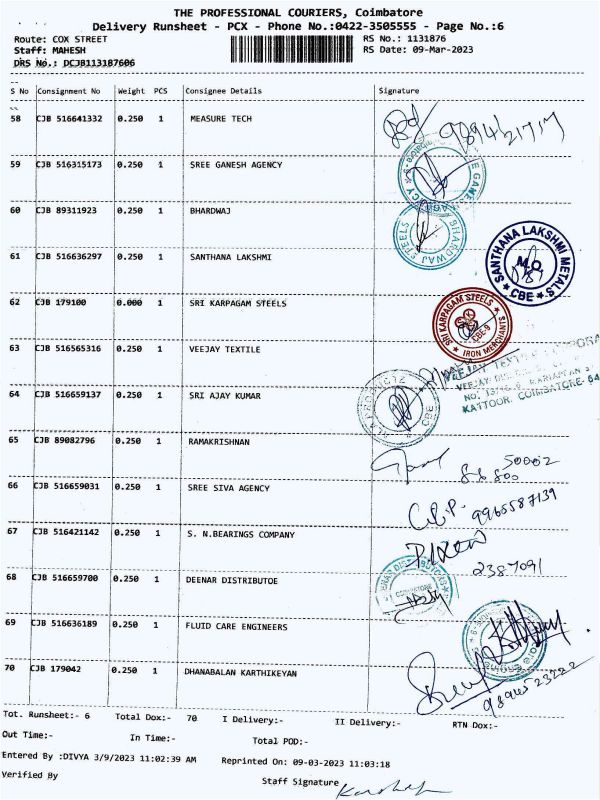 THE PROFESSIONAL COURIERS, Coimbatore
Delivery Runsheet - PCX - Phone No.:0422-3505555 - Page No.:6
Route: COX STREET RS No.: 1131876
Staff: MAHESH RS Date: 09-Mar-2023
DRS No.: DCJB113187606
S No Consignment No Weight PCS Consignee Details Signature
58 CJB 516641332 0.250 1 MEASURE TECH
59 CJB 516315173 0.250 1 SREE GANESH AGENCY
60 CJB 89311923 0.250 1 BHARDWAJ
BHARDWAJ STEELS
61 CJB 516636297 0.250 1 SANTHANA LAKSHMI
SANTHANA LAKSHMI METALS
M.O.
★ CBE ★
62 CJB 179100 0.000 1 SRI KARPAGAM STEELS
SRI KARPAGAM STEELS
CBE-9
★ IRON MERCHANTS ★
63 CJB 516565316 0.250 1 VEEJAY TEXTILE
VEEJAY
KATTOOR, COIMBATORE-
64 CJB 516659137 0.250 1 SRI AJAY KUMAR
65 CJB 89082796 0.250 1 RAMAKRISHNAN
50002
66 CJB 516659031 0.250 1 SREE SIVA AGENCY
9965587139
67 CJB 516421142 0.250 1 S. N.BEARINGS COMPANY
2387091
68 CJB 516659700 0.250 1 DEENAR DISTRIBUTOE
COIMBATORE
69 CJB 516636189 0.250 1 FLUID CARE ENGINEERS
70 CJB 179042 0.250 1 DHANABALAN KARTHIKEYAN
Tot. Runsheet:- 6 Total Dox:- 70 I Delivery:- II Delivery:- RTN Dox:-
Out Time:- In Time:- Total POD:-
Entered By :DIVYA 3/9/2023 11:02:39 AM Reprinted On: 09-03-2023 11:03:18
Verified By Staff Signature